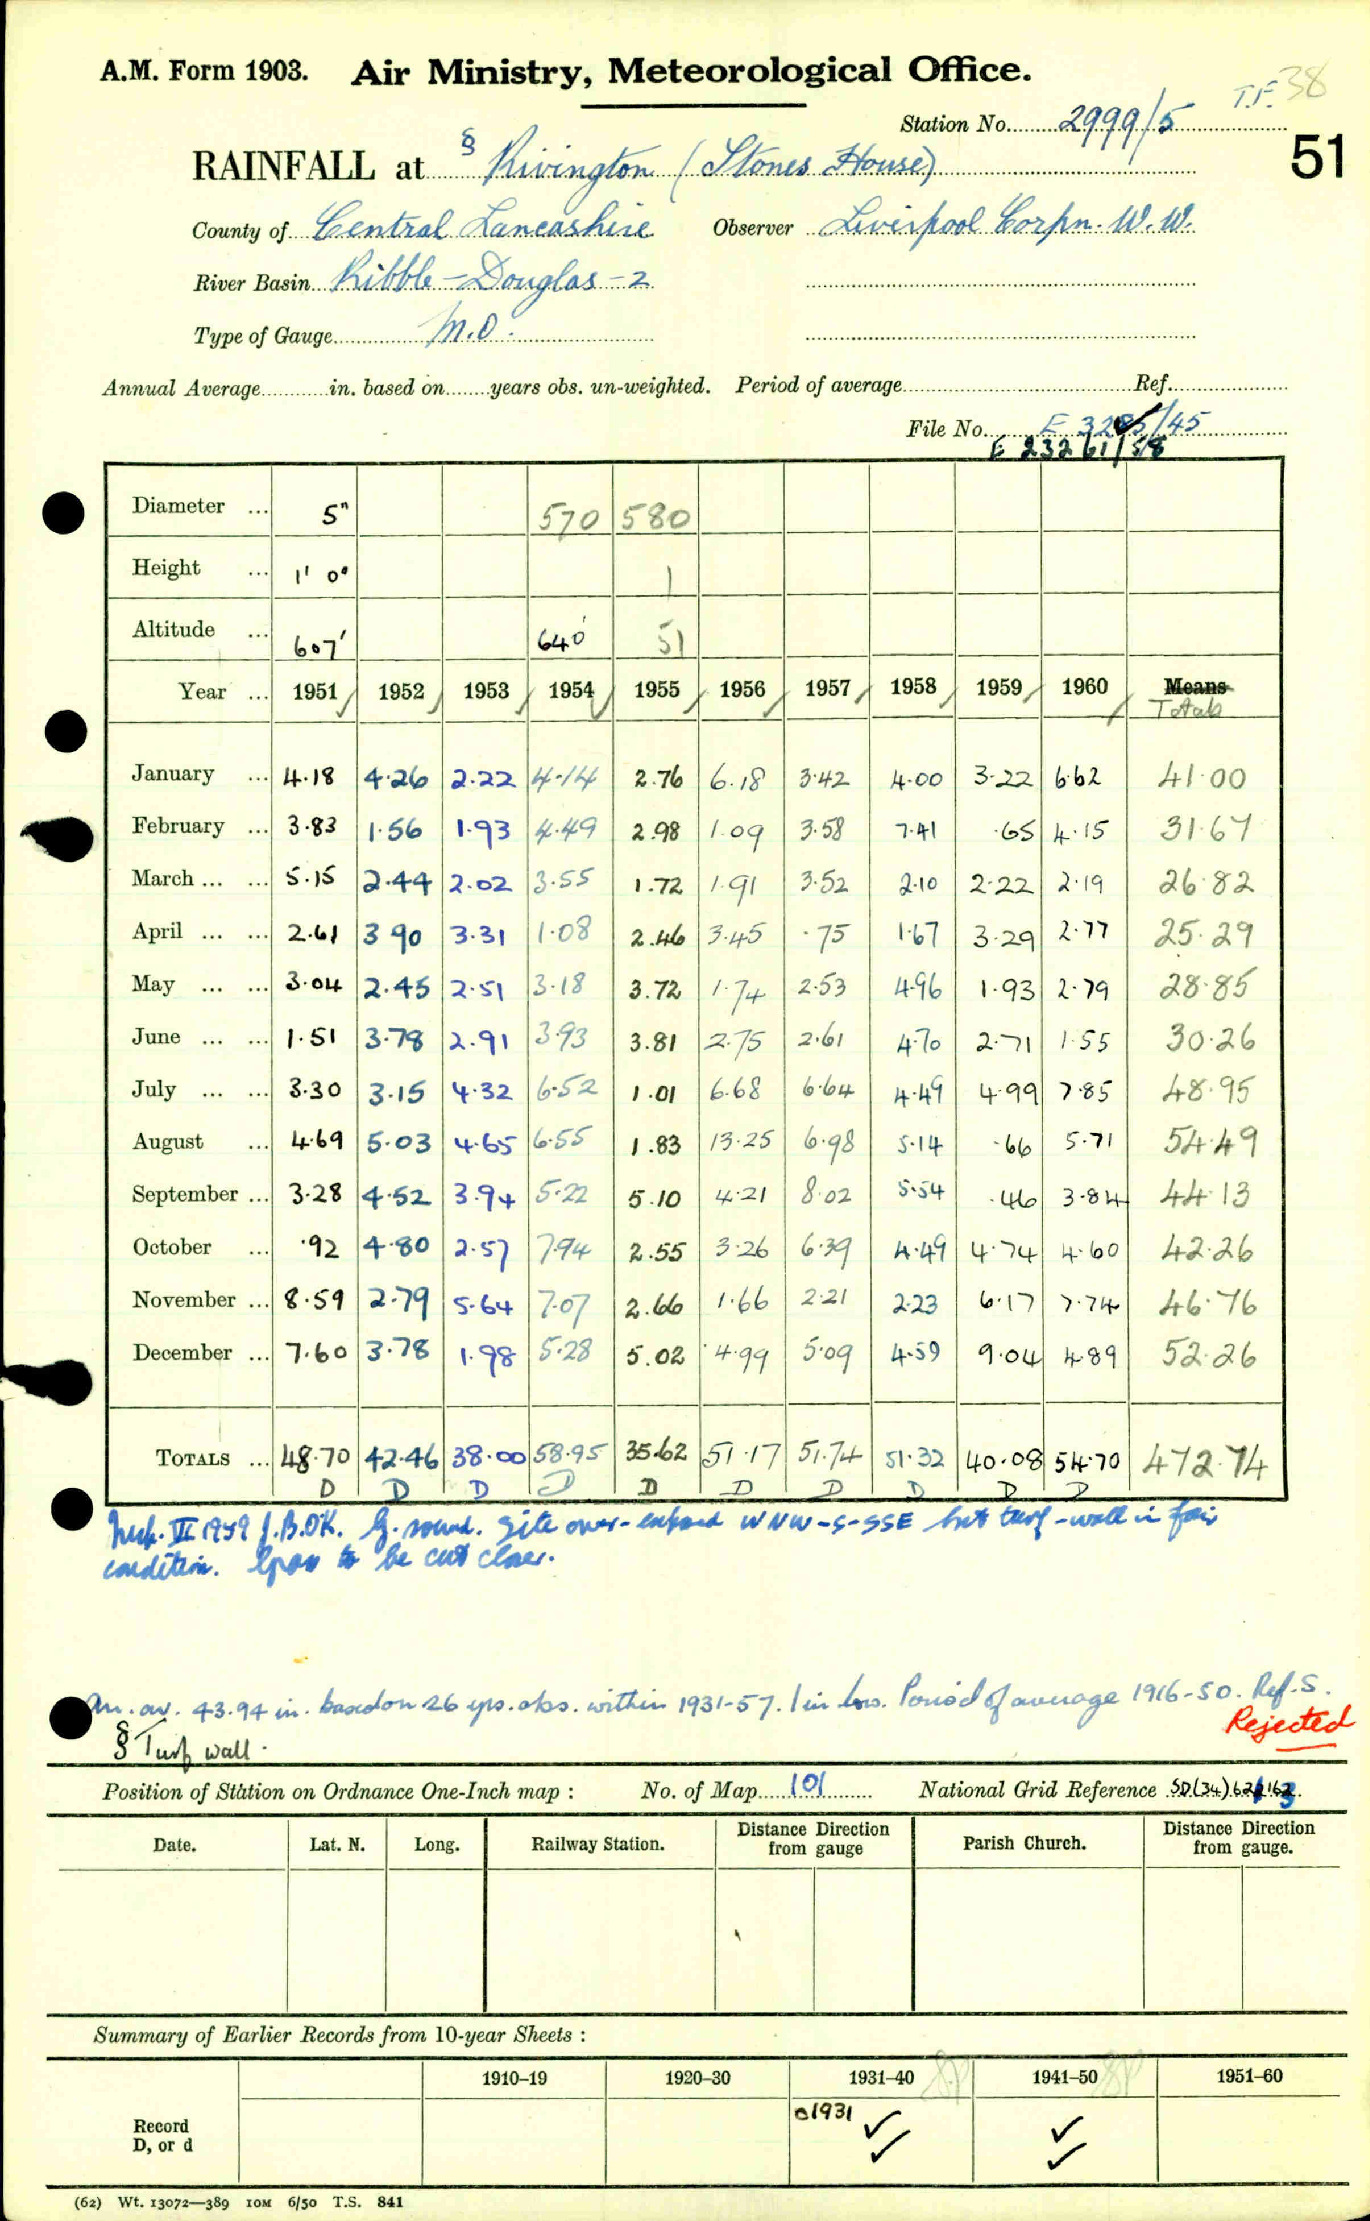 A.M. Form 1903. Air Ministry, Meteorological Office.
T.F. 38
Station No. 2999/5
51
RAINFALL at § Rivington (Stones House)
County of Central Lancashire Observer Liverpool Corpn. W.W.
River Basin Ribble-Douglas-2
Type of Gauge M.O.
Annual Average in. based on years obs. un-weighted. Period of average Ref.
File No. E 3285/45
E 23261/58
Diameter ... 5" 570 580
Height ... 1' 0" 1
Altitude ... 607' 640' 51
Year ... 1951 1952 1953 1954 1955 1956 1957 1958 1959 1960 Means
Totals
January ... 4.18 4.26 2.22 4.14 2.76 6.18 3.42 4.00 3.22 6.62 41.00
February ... 3.83 1.56 1.93 4.49 2.98 1.09 3.58 7.41 .65 4.15 31.67
March ... ... 5.15 2.44 2.02 3.55 1.72 1.91 3.52 2.10 2.22 2.19 26.82
April ... ... 2.61 3.90 3.31 1.08 2.46 3.45 .75 1.67 3.29 2.77 25.29
May ... ... 3.04 2.45 2.51 3.18 3.72 1.74 2.53 4.96 1.93 2.79 28.85
June ... ... 1.51 3.78 2.91 3.93 3.81 2.75 2.61 4.70 2.71 1.55 30.26
July ... ... 3.30 3.15 4.32 6.52 1.01 6.68 6.64 4.49 4.99 7.85 48.95
August ... 4.69 5.03 4.65 6.55 1.83 13.25 6.98 5.14 .66 5.71 54.49
September ... 3.28 4.52 3.94 5.22 5.10 4.21 8.02 5.54 .46 3.84 44.13
October ... .92 4.80 2.57 7.94 2.55 3.26 6.39 4.49 4.74 4.60 42.26
November ... 8.59 2.79 5.64 7.07 2.66 1.66 2.21 2.23 6.17 7.74 46.76
December ... 7.60 3.78 1.98 5.28 5.02 4.99 5.09 4.59 9.04 4.89 52.26
TOTALS ... 48.70 42.46 38.00 58.95 35.62 51.17 51.74 51.32 40.08 54.70 472.74
D D D D D D D D D D
Insp. VII 1959 J.B.OK. G. sound. Site over-exposed WNW-S-SSE but turf-wall in fair
condition. Grass to be cut closer.
An. av. 43.94 in. based on 26 yrs. obs. within 1931-57. 1 in low. Period of average 1916-50. Ref. S.
Rejected
§ Turf wall.
Position of Station on Ordnance One-Inch map : No. of Map 101 National Grid Reference SD(34)
Date. Lat. N. Long. Railway Station. Distance Direction from gauge Parish Church. Distance Direction from gauge.
Summary of Earlier Records from 10-year Sheets :
1910–19 1920–30 1931–40 1941–50 1951–60
Record
D, or d
c1931 ✓ ✓
✓ ✓
(62) Wt. 13072—389 10M 6/50 T.S. 841